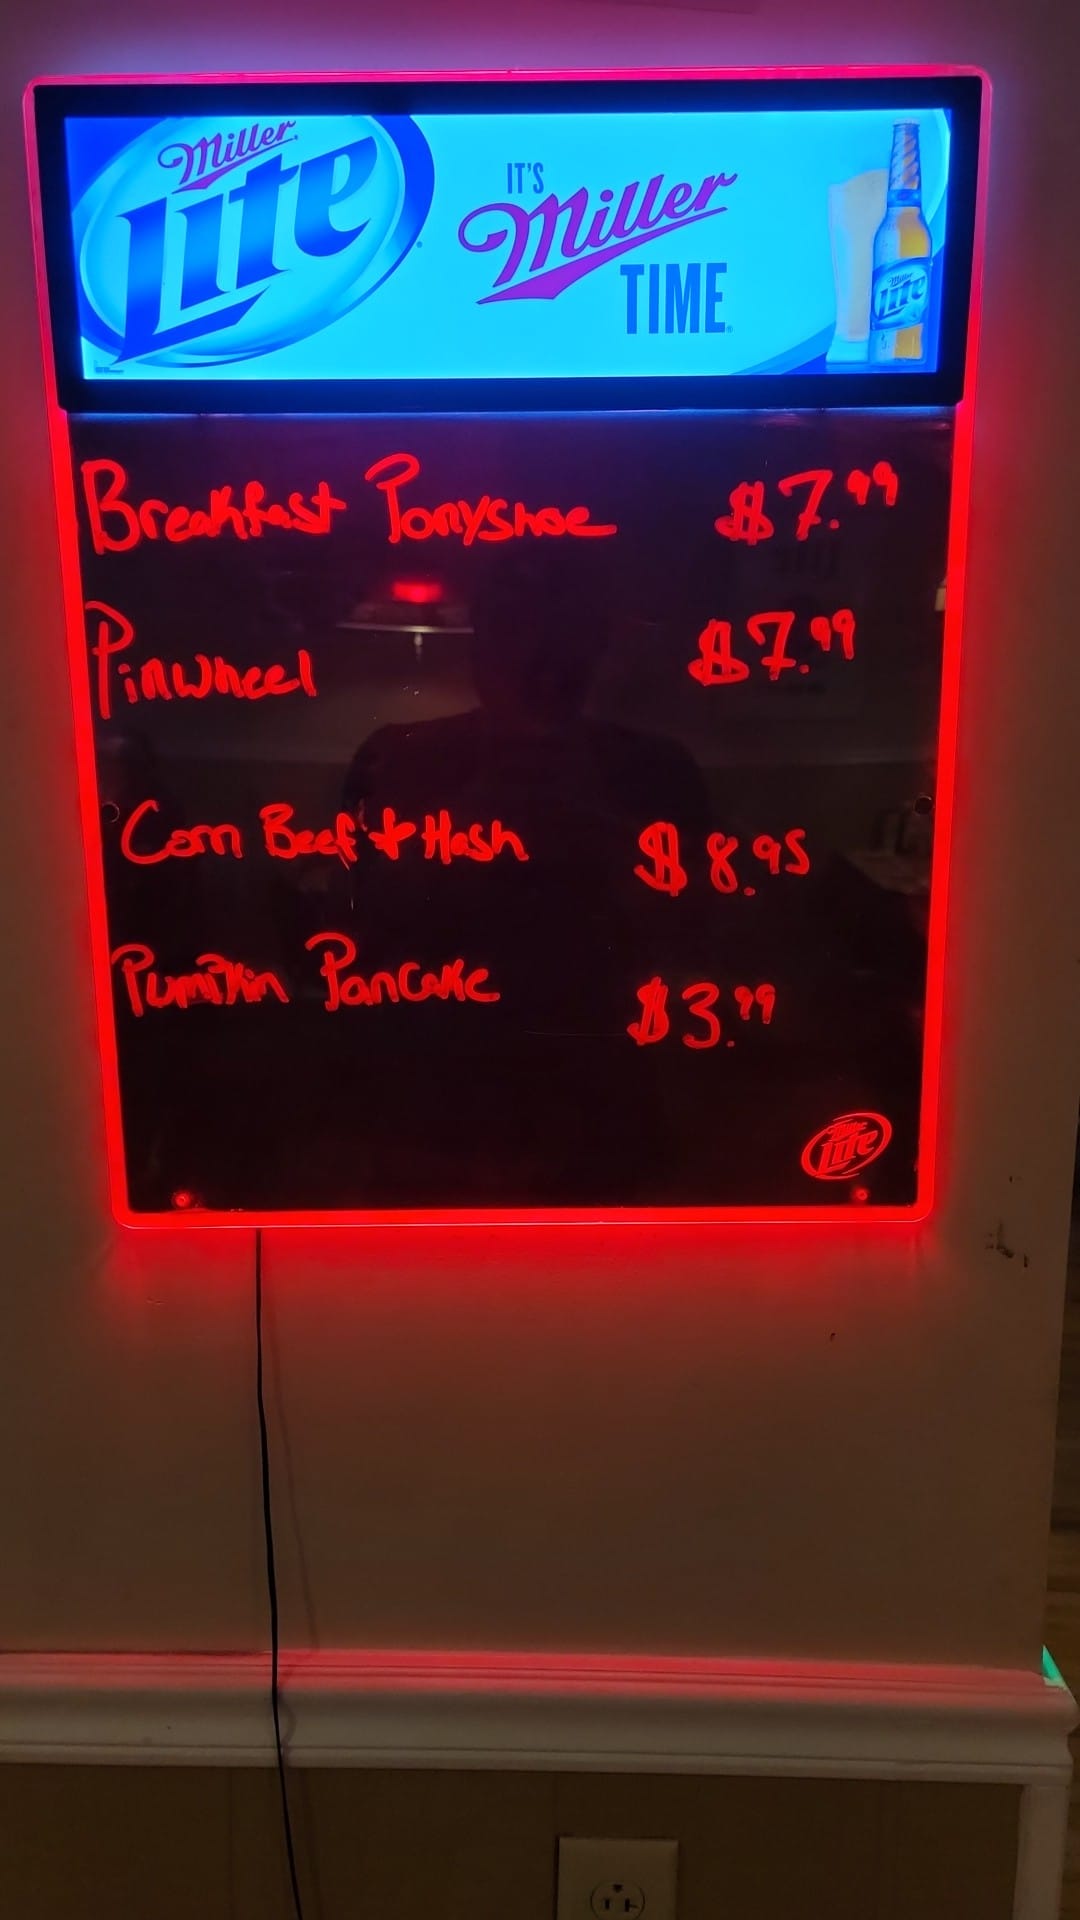 Miller
Lite
IT'S
Miller
TIME
Miller
Lite
Breakfast Ponyshoe $7.99
Pinwheel $7.99
Corn Beef & Hash $8.95
Pumpkin Pancake $3.99
Miller
Lite